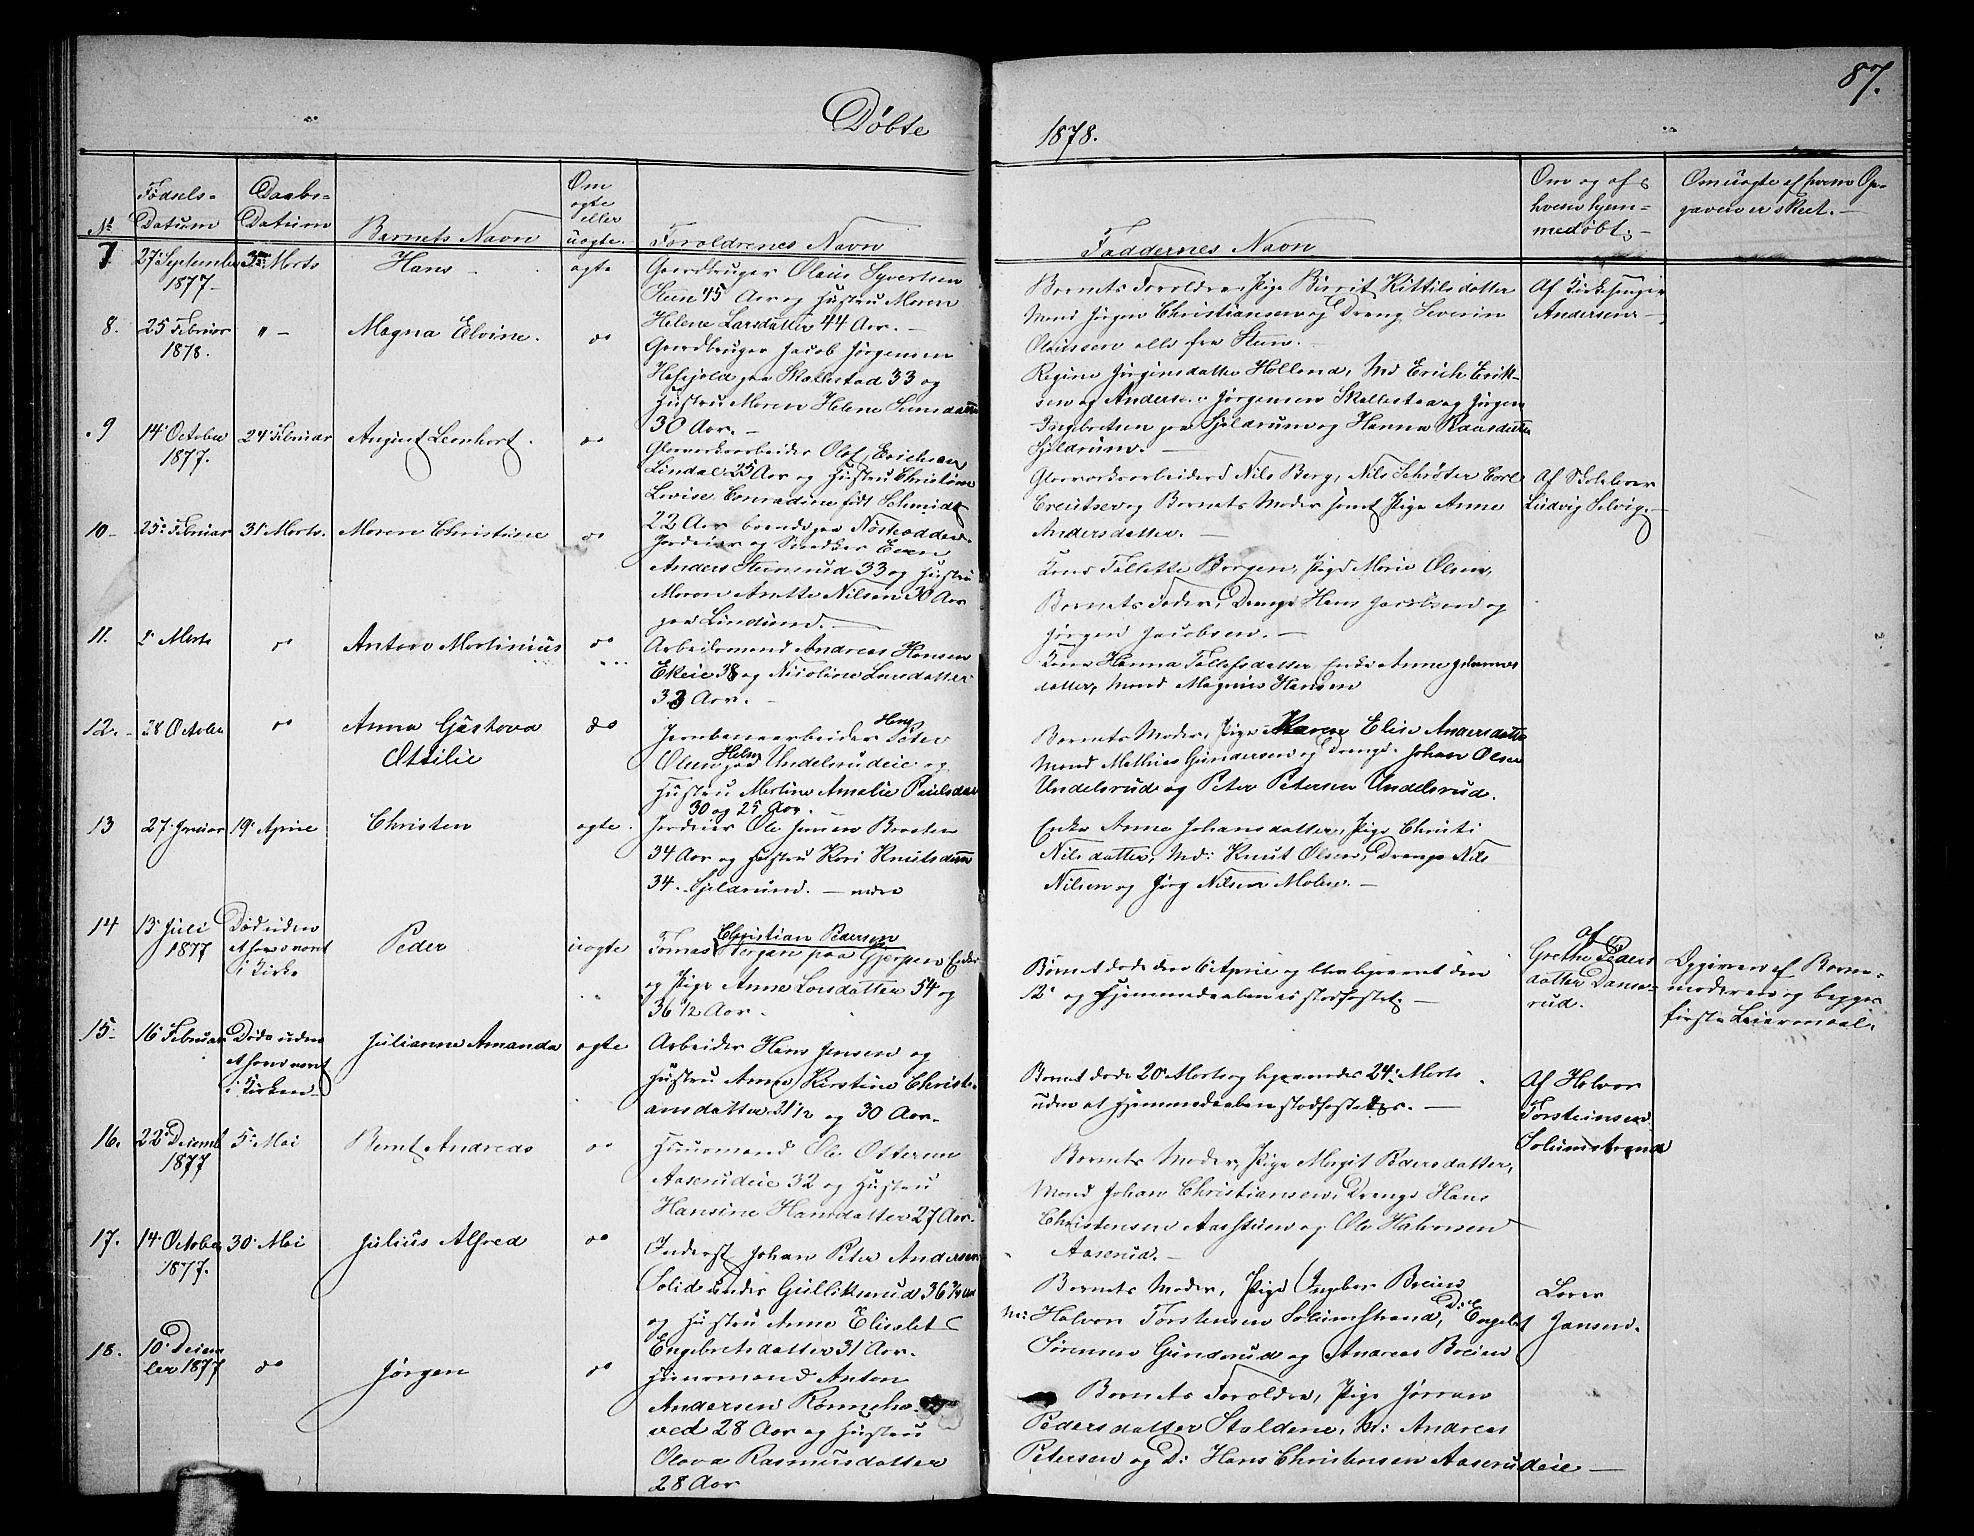 87.
Døbte
1878.
№
Fødsels-
Datum
Daabs-
Datum
Barnets Navn
Om
ægte
eller
uægte.
Forældrenes Navn
Faddernes Navn
Om og af
hvem hjem-
medøbt.
Om uægte af hvem Op-
gaven er skeet.
7 27 September Marts Hans ægte Gaardbruger Olaus Syvertsen
1877
Stun 45 Aar og Hustru Maren
Helene Larsdatter 44 Aar.
Barnets Forældre, Pige Birgit Kittilsdatter
Mand Jørgen Christiansen og Dreng Severin
Olaussen alle fra Stun.
Af Kirkesanger
Andersen
8. 25 Februar " Magna Elvine. do Gaardbruger Jacob Jørgensen
1878.
paa Skallestad 33 og
Hustru Maren Helene
30 Aar.
Regine Jørginsdatter Holland, Md Erich Erik-
sen og Anders Jørgensen Skallestad og Jørgen
Ingebretsen paa Fjeldrum og Hanna
Fjeldrum.
9 14 October 24 Februar August Leonhart. do Glasværksarbeider Olaf Erichsen
1877.
Lindal 25 Aar og Hustru Christine
Lovise Conradine født Schmidt
22 Aar boende paa Næstodden.
Glasværksarbeider Nils Berg, Nils Schrøter Carl
Creutsen og Barnets Moder samt Pige Anne
Andersdatter.
Af Skolelærer
Ludvig Selvig.
10 25 Februar 31 Marts. Maren Christine do Jordeier og Snedker Even
Anders Stenrud 33 og Hustru
Maren Anette Nilsen 30 Aar
paa Lindlund.
Kone Tollette Borgen, Pige Marie Olsen,
Barnets Fader, Dreng Hans Jacobsen og
Jørgen Jacobsen.
11. 2 Marts do Anton Martinius do Arbeidsmand Andreas Hansen
Ekeie 38 og Nicoline Larsdatter
33 Aar.
Kone Hanna Tollefsdatter Enke Anne
datter, Mand Magnus Hansen
12. 28 October do Anna Gustova do Jernbanearbeider Peter
Ottilie
Olsen paa Undelsrudeie og
Hustru Martine Amalie Paulsdatter
30 og 25 Aar.
Barnets Moder, Pige Karen Elise Andersdatter
Mand Mathias Gundersen og Drenge Johan Olsen
Undelsrud og Peter Petersen Undelsrud.
13 27 Januar 19 April Christen ægte. Jordeier Ole Jensen Braaten
34 Aar og Hustru Kari Knutsdatter
34. Fjeldrund. nedre
Enke Anne Johansdatter, Pige Christi
Nilsdatter, Md: Knut Olsen, Drenge Nils
Nilsen og Jørg Nilsen Moløen.
14 13 Juli Død uden Peder uægte Tomas Christian Pedersen
1877 at have været
i Kirke
Borgan paa Gjerpen Enke
og Pige Anne Larsdatter 54 og
36 1/2 Aar.
Barnet døde den 6 April og blev begravet den
12 og Hjemmedaaben ei stadfæstet.
af
Grethe Peders
datter Dans-
rud.
Opgiven af Barne-
moderen og begges
første Leiermaal.
15. 16 Februar Døde uden Julianne Amanda ægte Arbeider Hans Jensen og
at have været
i Kirken
Hustru Anne Kirstine Christi-
ansdatter 31 1/2 og 30 Aar.
Barnet døde 20 Marts og begravedes 24 Marts
uden at Hjemmedaaben stadfæstedes.
Af Halvor
Torsteinsen
Solumstrand
16. 22 Decemb 5 Mai Bernt Andreas do Huusmand Ole Ottersen
1877
Aaserudeie 32 og Hustru
Hansine Hansdatter 27 Aar.
Barnets Moder, Pige Margit Pedersdatter,
Mand Johan Christiansen, Drenge Hans
Christensen Aasstuen og Ole Halvorsen
Aaserud.
17. 14 October 30 Mai Julius Alfred do Inderst Johan Peter Andersen
1877.
Solid under Gulliksrud 36 3/4 Aar
og Hustru Anne Elisabet
Engebretsdatter 31 Aar.
Barnets Moder, Pige Ingeber Breien
M: Halvor Torstensen Solumstrand, D: Engebret
Sørensen Gunderud og Andreas Breien
Lærer
Jansen.
18. 10 Decem- do Jørgen do Huusmand Anton
ber 1877
Andersen Rønneho-
ved 28 Aar og Hustru
Olava Rasmusdatter
28 Aar
Barnets Forældre, Pige Jørran
Pedersdatter Staldene, M: Andreas
Petersen og D: Hans Christensen Aaserudeie